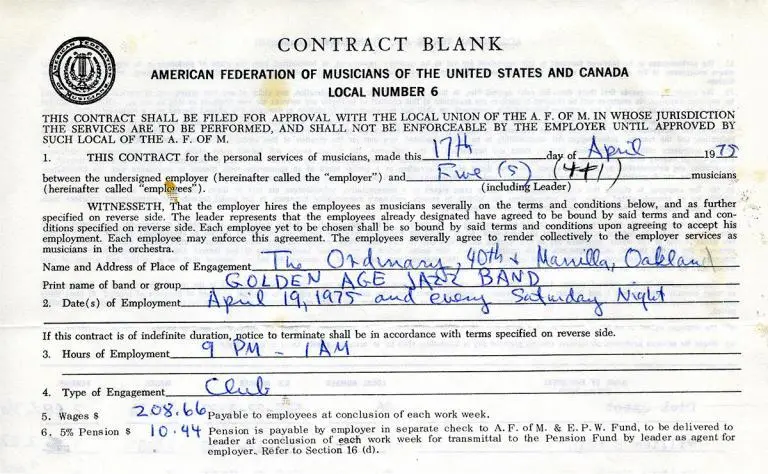 CONTRACT BLANK
AMERICAN FEDERATION OF MUSICIANS OF THE UNITED STATES AND CANADA
LOCAL NUMBER 6
THIS CONTRACT SHALL BE FILED FOR APPROVAL WITH THE LOCAL UNION OF THE A. F. OF M. IN WHOSE JURISDICTION
THE SERVICES ARE TO BE PERFORMED, AND SHALL NOT BE ENFORCEABLE BY THE EMPLOYER UNTIL APPROVED BY
SUCH LOCAL OF THE A. F. OF M.
1. THIS CONTRACT for the personal services of musicians, made this 17th day of April 1975
between the undersigned employer (hereinafter called the "employer") and Five (5) (4+1) musicians
(hereinafter called "employees"). (including Leader)
WITNESSETH, That the employer hires the employees as musicians severally on the terms and conditions below, and as further
specified on reverse side. The leader represents that the employees already designated have agreed to be bound by said terms and con-
ditions specified on reverse side. Each employee yet to be chosen shall be so bound by said terms and conditions upon agreeing to accept his
employment. Each employee may enforce this agreement. The employees severally agree to render collectively to the employer services as
musicians in the orchestra.
Name and Address of Place of Engagement The Ordinary, 40th & Manilla, Oakland
Print name of band or group GOLDEN AGE JAZZ BAND
2. Date(s) of Employment April 19, 1975 and every Saturday Night
If this contract is of indefinite duration, notice to terminate shall be in accordance with terms specified on reverse side.
3. Hours of Employment 9 PM - 1 AM
4. Type of Engagement Club
5. Wages $ 208.66 Payable to employees at conclusion of each work week.
6. 5% Pension $ 10.44 Pension is payable by employer in separate check to A. F. of M. & E. P. W. Fund, to be delivered to
leader at conclusion of each work week for transmittal to the Pension Fund by leader as agent for
employer. Refer to Section 16 (d).